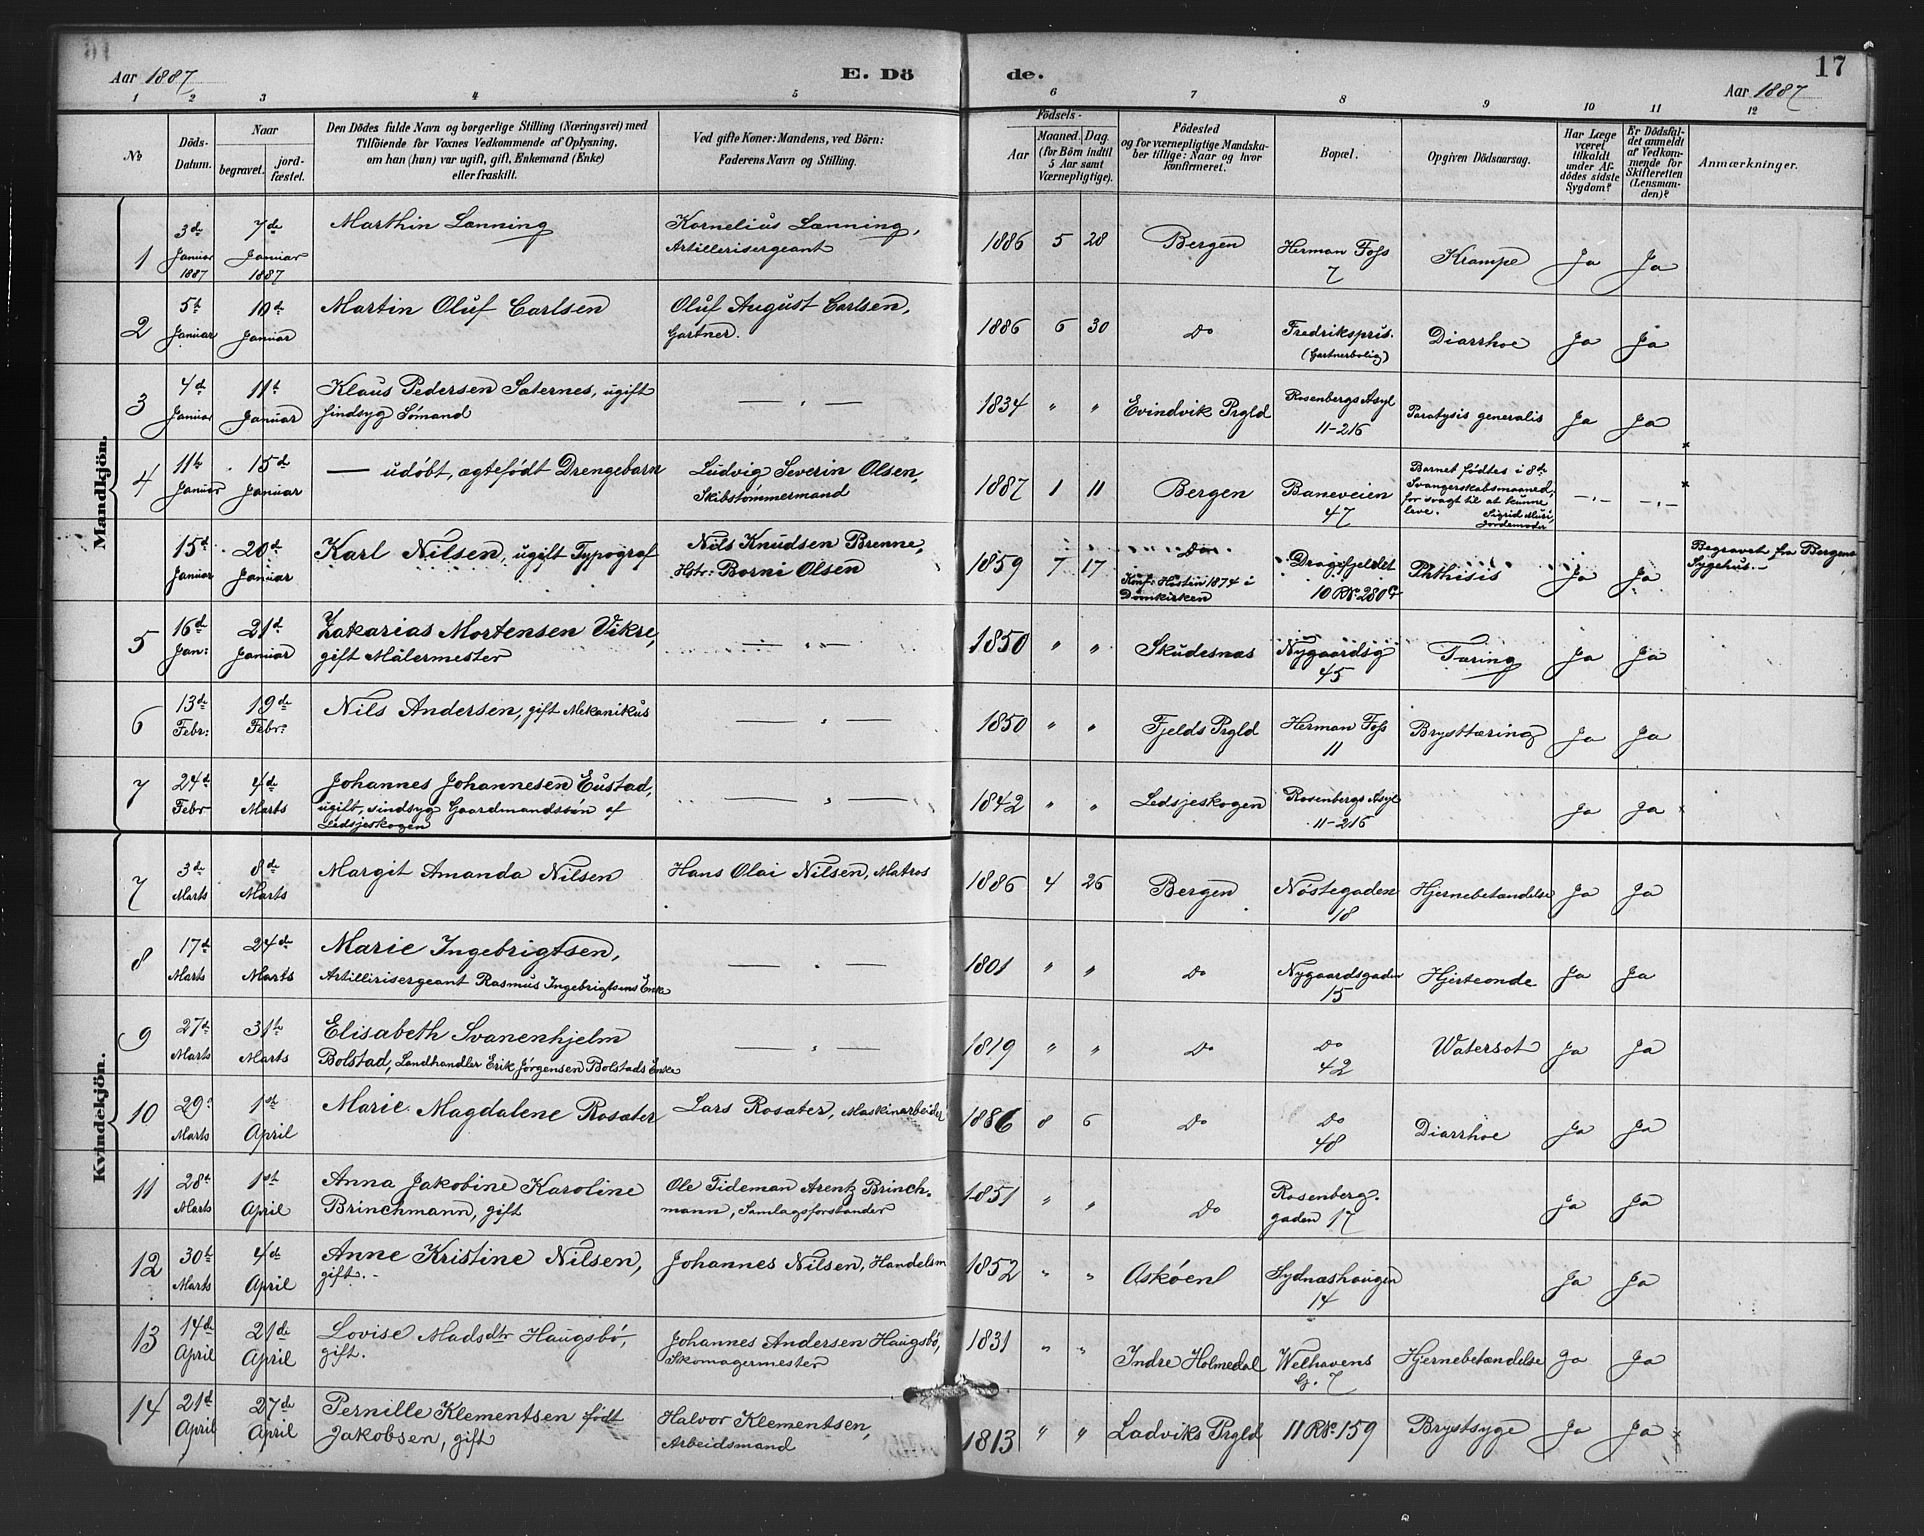 Aar 1887
E. Dö
de.
17
Aar 1887
1 2 3 4 5 6 7 8 9 10 11 12
No
Döds-Datum.
Naar
begravet.
jord-fæstet.
Den Dödes fulde Navn og borgerlige Stilling (Næringsvei) med
Tilföiende for Voxnes Vedkommende af Oplysning,
om han (hun) var ugift, gift, Enkemand (Enke)
eller fraskilt.
Ved gifte Koner: Mandens, ved Börn:
Faderens Navn og Stilling.
Födsels-
Aar
Maaned. Dag.
(for Börn indtil
5 Aar samt
Værnepligtige).
Födested
og for værnepligtige Mandska-
ber tillige: Naar og hvor
konfirmeret.
Bopæl.
Opgiven Dödsaarsag.
Har Læge
været
tilkaldt
under Af-
dödes sidste
Sygdom?
Er Dödsfal-
det anmeldt
af Vedkom-
mende for
Skifteretten
(Lensman-
den)?
Anmærkninger.
Mandkjön.
1 3de Januar 1887 7de Januar 1887 Marthin Lænning Kornelius Lænning, Artillerisergeant 1886 5 28 Bergen Herman Foss 7 Krampe Ja Ja
2 5te Januar 10de Januar Martin Oluf Carlsen Oluf August Carlsen, Gartner. 1886 6 30 Do Fredrikspris. (Gartnerbolig) Diarrhoe Ja Ja
3 4de Januar 11te Januar Klaus Pedersen Saternes, ugift sindsyg Sömand — " — 1834 " " Evindvik Prgld Rosenbergs Asyl 11-216 Paralysis generalis Ja Ja
4 11te Januar 15de Januar — udöbt, ægtefödt Drengebarn Ludvig Severin Olsen, Skibstömmermand 1887 1 11 Bergen Baneveien 47 Barnet födtes i 8de Svangerskabsmaaned, for svagt til at kunne leve. Sigrid Jordemoder — " — — " —
15de Januar 20de Januar Karl Nilsen, ugift Typograf Nils Knudsen Brenne, Hstr: Borni Olsen 1859 7 17 Do Konf: Hösten 1874 i Domkirken Dragefjeldet 10 RNo 280 Phthisis Ja Ja Begravet fra Bergens Sygehus.
5 16de Jan: 21de Januar Zakarias Mortensen Vikre, gift Målermester — " — 1850 " " Skudesnæs Nygaardsg 45 Tæring Ja Ja
6 13de Febr: 19de Febr: Nils Andersen, gift Mekanikus — " — 1850 " " Fjelds Prgld Herman Foss 11 Brysttæring Ja Ja
7 24de Febr 4de Marts Johannes Johannesen Eustad, ugift, sindsyg Gaardmandssön af Ledsjeskogen — " — 1842 " " Ledsjeskogen Rosenbergs Asyl 11-216 Ja Ja
Kvindekjön.
7 3de Marts 8de Marts Margit Amanda Nilsen Hans Olai Nilsen, Matros 1886 4 26 Bergen Nöstegaden 18 Hjernebetændelse Ja Ja
8 17de Marts 24de Marts Marie Ingebrigtsen, Artillirisergeant Rasmus Ingebrigtsens Enke — " — 1801 " " Do Nygaardsgaden 15 Hjerteonde Ja Ja
9 27de Marts 31te Marts Elisabeth Svanenhjelm Bolstad, Landhandler Erik Jörgensen Bolstads Enke — " — 1819 " " Do Do 42 Watersot Ja Ja
10 29de Marts 1ste April Marie Magdalene Rosæter Lars Rosæter, Maskinarbeider 1886 8 6 Do Do 48 Diarrhoe Ja Ja
11 28de Marts 1ste April Anna Jakobine Karoline Brinchmann, gift Ole Tideman Arentz Brinchmann, Samlagsforstander 1851 " " Do Rosenberggaden 17 Ja Ja
12 30te Marts 4de April Anne Kristine Nilsen, gift. Johannes Nilsen, Handelsm 1852 " " Asköen Sydnæshougen 14 Ja Ja
13 14de April 21de April Lovise Madsdtr Haugsbö, gift. Johannes Andersen Haugsbö, Skomagermester 1831 " " Indre Holmedal Welhavens G. 7 Hjernebetændelse Ja Ja
14 21de April 27de April Pernille Klementsen födt Jakobsen, gift Halvor Klementsen, Arbeidsmand 1813 " " Ladviks Prgld 11 RNo 159 Brystsyge Ja Ja